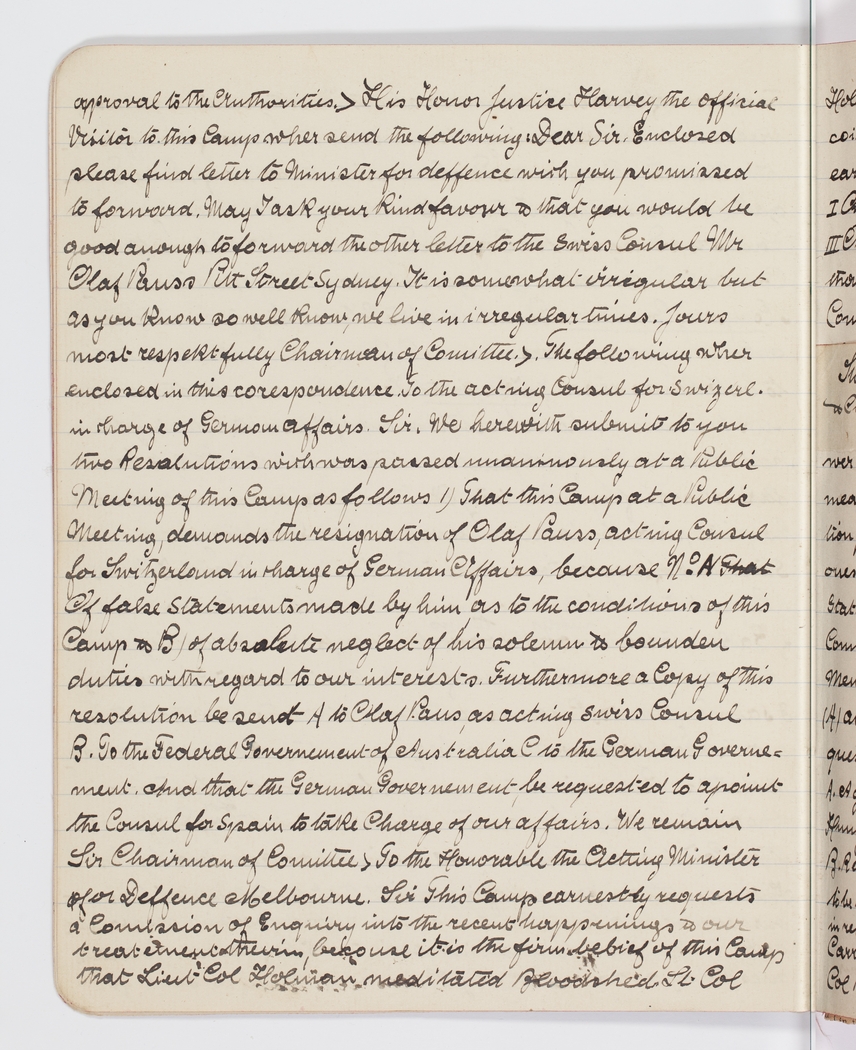 approval to the Authorities.> His Honor Justice Harvey the official
Visitor to this Camp wher send the following: Dear Sir. Enclosed
please find letter to Minister for deffence wich you promissed
to forward. May I ask your kind favour & that you would be
good anough to forward the other letter to the Swiss Consul Mr
Olaf Pauss Pitt Street Sydney. It is somewhat irregular but
as you know so well know, we live in irregular times. Jours
most respektfully Chairman of Comittee.>. The following wher
enclosed in this corespondence. To the acting Consul for Swizerl.
in charge of German affairs. Sir. We herewith submit to you
two Resalutions wich was passed unanimously at a Public
Meeting of this Camp as follows 1) That this Camp at a Public
Meeting, demands the resignation of Olaf Pauss, acting Consul
for Switzerland in charge of German Affairs, because No A That
Of false Statements made by him as to the conditions of this
Camp & B) of absolute neglect of his solemn & bounden
duties with regard to our interests. Furthermore a Copy of this
resolution be send A to Olaf Paus, as acting Swiss Consul
B. To the Federal Governement of Australia C to the German Governe=
ment. And that the German Governement, be requested to apoint
the Consul for Spain to take Charge of our affairs. We remain
Sir Chairman of Comittee> To the Honorable the Acting Minister
for Deffence Melbourne. Sir This Camp earnestly requests
a Comission of Enquiry into the recent happenings & our
treatement therin, because it is the firm belief of this Camp
that Lieut Col Holman meditated Bloodshed. Lt Col